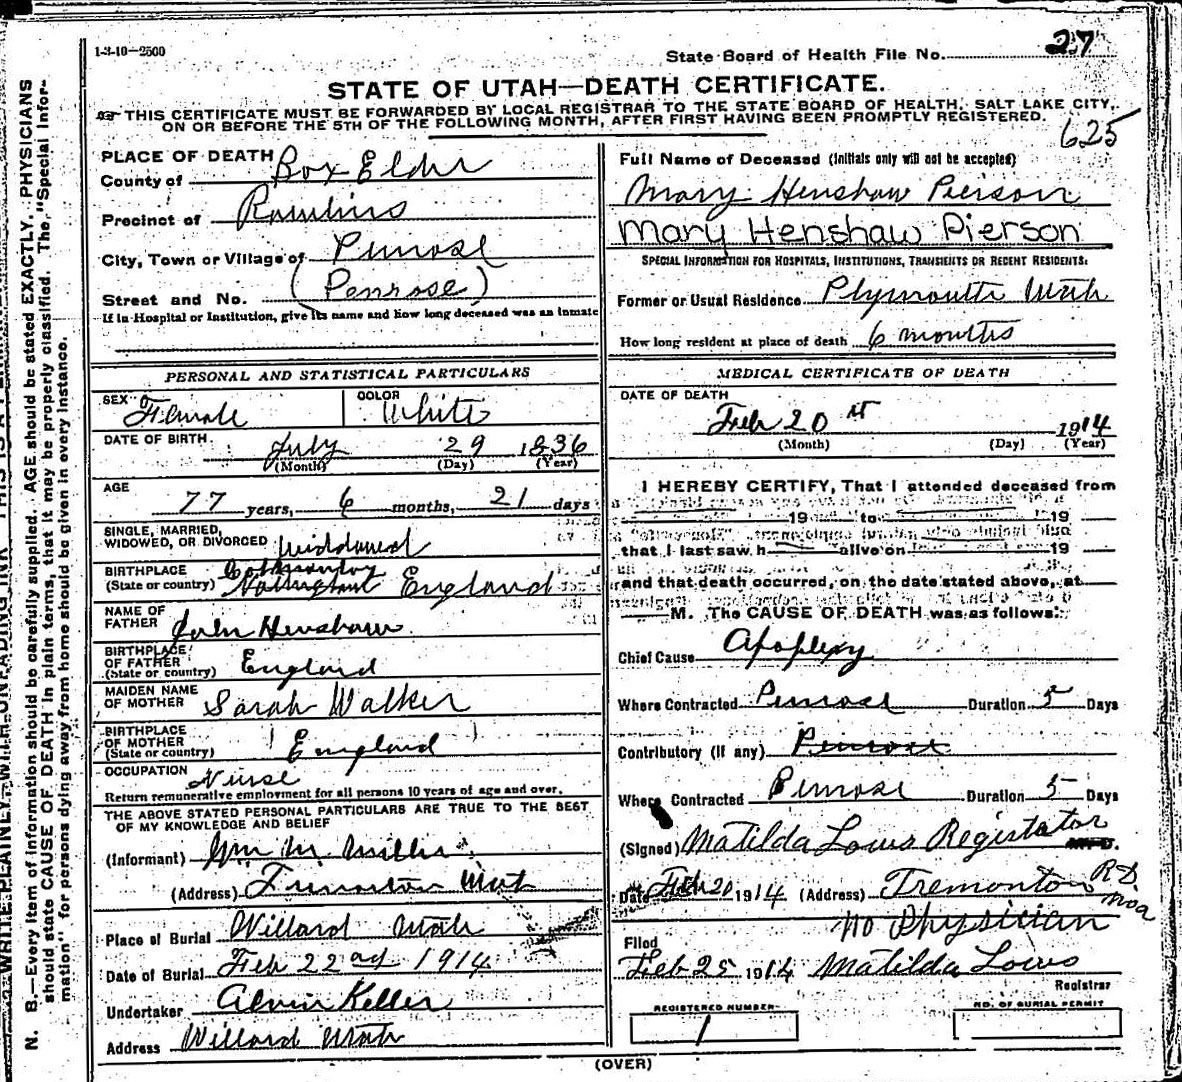 1-3-10—2500
State Board of Health File No. 27
STATE OF UTAH—DEATH CERTIFICATE.
THIS CERTIFICATE MUST BE FORWARDED BY LOCAL REGISTRAR TO THE STATE BOARD OF HEALTH, SALT LAKE CITY,
ON OR BEFORE THE 5TH OF THE FOLLOWING MONTH, AFTER FIRST HAVING BEEN PROMPTLY REGISTERED.
625
PLACE OF DEATH
County of Box Elder
Precinct of Rawlins
City, Town or Village of Penrose
Street and No. (Penrose)
If in Hospital or Institution, give its name and how long deceased was an inmate
PERSONAL AND STATISTICAL PARTICULARS
SEX Female COLOR White
DATE OF BIRTH July 29 1836
(Month) (Day) (Year)
AGE
77 years, 6 months, 21 days
SINGLE, MARRIED,
WIDOWED, OR DIVORCED Widdowed
BIRTHPLACE
(State or country) England
NAME OF
FATHER John Henshaw
BIRTHPLACE
OF FATHER
(State or country) England
MAIDEN NAME
OF MOTHER Sarah Walker
BIRTHPLACE
OF MOTHER
(State or country) England
OCCUPATION Nurse
Return remunerative employment for all persons 10 years of age and over.
THE ABOVE STATED PERSONAL PARTICULARS ARE TRUE TO THE BEST
OF MY KNOWLEDGE AND BELIEF
(Informant) Wm M. Miller
(Address) Tremonton Utah
Place of Burial Willard Utah
Date of Burial Feb 22 1914
Undertaker Alvin Keller
Address Willard Utah
Full Name of Deceased (Initials only will not be accepted)
Mary Henshaw Pierson
Mary Henshaw Pierson
SPECIAL INFORMATION FOR HOSPITALS, INSTITUTIONS, TRANSIENTS OR RECENT RESIDENTS:
Former or Usual Residence Plymouth Utah
How long resident at place of death 6 months
MEDICAL CERTIFICATE OF DEATH
DATE OF DEATH
Feb 20 1914
(Month) (Day) (Year)
I HEREBY CERTIFY, That I attended deceased from
19 to 19
that I last saw h alive on 19
and that death occurred, on the date stated above, at
M. The CAUSE OF DEATH was as follows:
Chief Cause Apoplexy
Where Contracted Penrose Duration 5 Days
Contributory (if any) Penrose
Where Contracted Penrose Duration 5 Days
(Signed) Matilda Lows Registator M.D.
Date Feb 20 1914 (Address) Tremonton R.D.
No Physician
Filed
Feb 25 1914 Matilda Lows
Registrar
REGISTERED NUMBER
1
NO. OF BURIAL PERMIT
(OVER)
N. B.—Every item of information should be carefully supplied. AGE should be stated EXACTLY. PHYSICIANS
should state CAUSE OF DEATH in plain terms, that it may be properly classified. The "Special Infor-
mation" for persons dying away from home should be given in every instance.